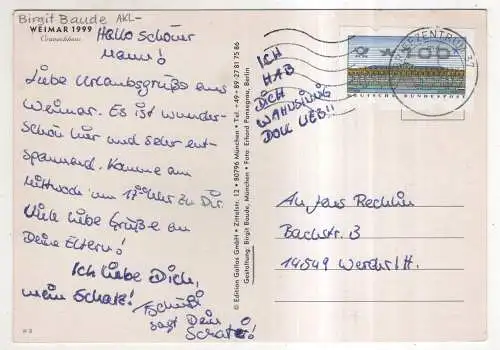 Birgit Baude AKL-
WEIMAR 1999
Cranachhaus
Hallo schöner
Mann!
Liebe Urlaubsgrüße aus
Weimar. Es ist wunder-
schön hier und sehr ent-
spannend. Komme am
Mittwoch um 17 Uhr zu Dir.
Viele liebe Grüße an
Deine Eltern!
Ich liebe Dich,
mein Schatz!
Tschüßi
sagt Dein
Schatz!
© Edition Gallas GmbH • Zittelstr. 12 • 80796 München • Tel. +49-89-27 81 75 86
Gestaltung: Birgit Baude, München • Foto: Erhard Pansegrau, Berlin
ICH
HAB
DICH
WAHNSINNIG
DOLL LIEB!!
100
DEUTSCHE BUNDESPOST
BRIEFZENTRUM 37
An Jens Rechlin
Bachstr. 3
14549 Werder/H.